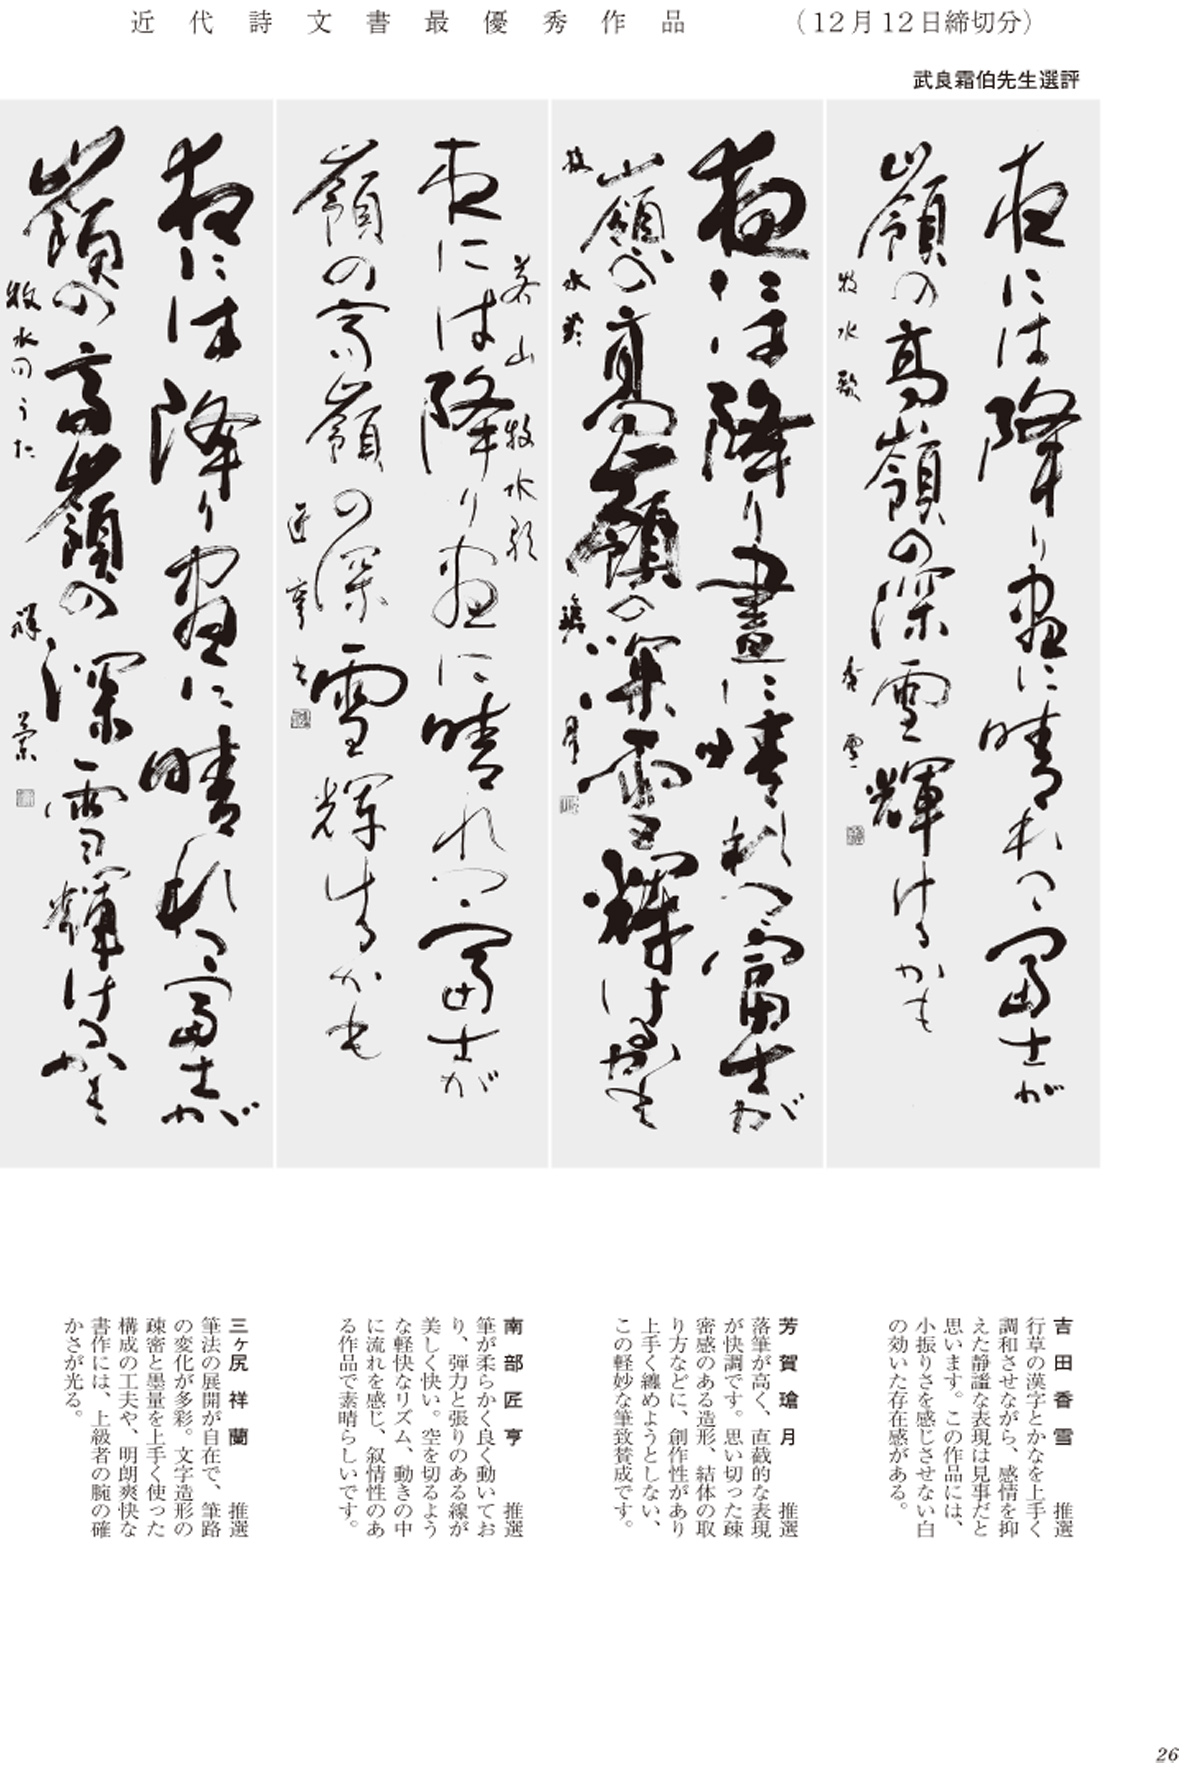 近代詩文書最優秀作品 (12月12日締切分)
武良霜伯先生選評
夜には降り昼に晴れつゝ富士が
嶺の高嶺の深雪輝けるかも
牧水歌 香雪
夜には降り晝に晴れつゝ富士が
嶺の高嶺の深雪輝けるかも
牧水
夜には降り昼に晴れつゝ富士が
嶺の高嶺の深雪輝けるかも
若山牧水歌
匠亨
夜には降り昼に晴れつゝ富士が
嶺の高嶺の深雪輝けるかも
牧水のうた 祥蘭
吉田香雪 推選
行草の漢字とかなを上手く
調和させながら、感情を抑
えた静謐な表現は見事だと
思います。この作品には、
小振りさを感じさせない白
の効いた存在感がある。
芳賀瑲月 推選
落筆が高く、直截的な表現
が快調です。思い切った疎
密感のある造形、結体の取
り方などに、創作性があり
上手く纏めようとしない、
この軽妙な筆致賛成です。
南部匠亨 推選
筆が柔らかく良く動いてお
り、弾力と張りのある線が
美しく快い。空を切るよう
な軽快なリズム、動きの中
に流れを感じ、叙情性のあ
る作品で素晴らしいです。
三ヶ尻祥蘭 推選
筆法の展開が自在で、筆路
の変化が多彩。文字造形の
疎密と墨量を上手く使った
構成の工夫や、明朗爽快な
書作には、上級者の腕の確
かさが光る。
26